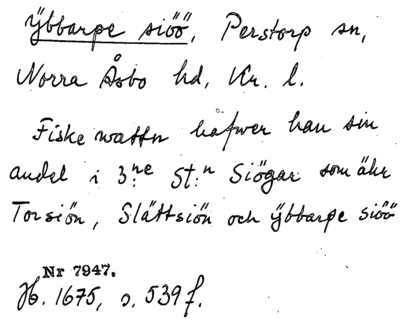 Ÿbbarpe siöö, Perstorp sn,
Norra Åsbo hd, Kr. l.
Fiske wattn hafwer han sin
andel i 3:ne St:n Siögar som ähr
Torsiön, Slättsiön och ÿbbarpe siöö
Nr 7947.
Jb. 1675, s. 539 f.